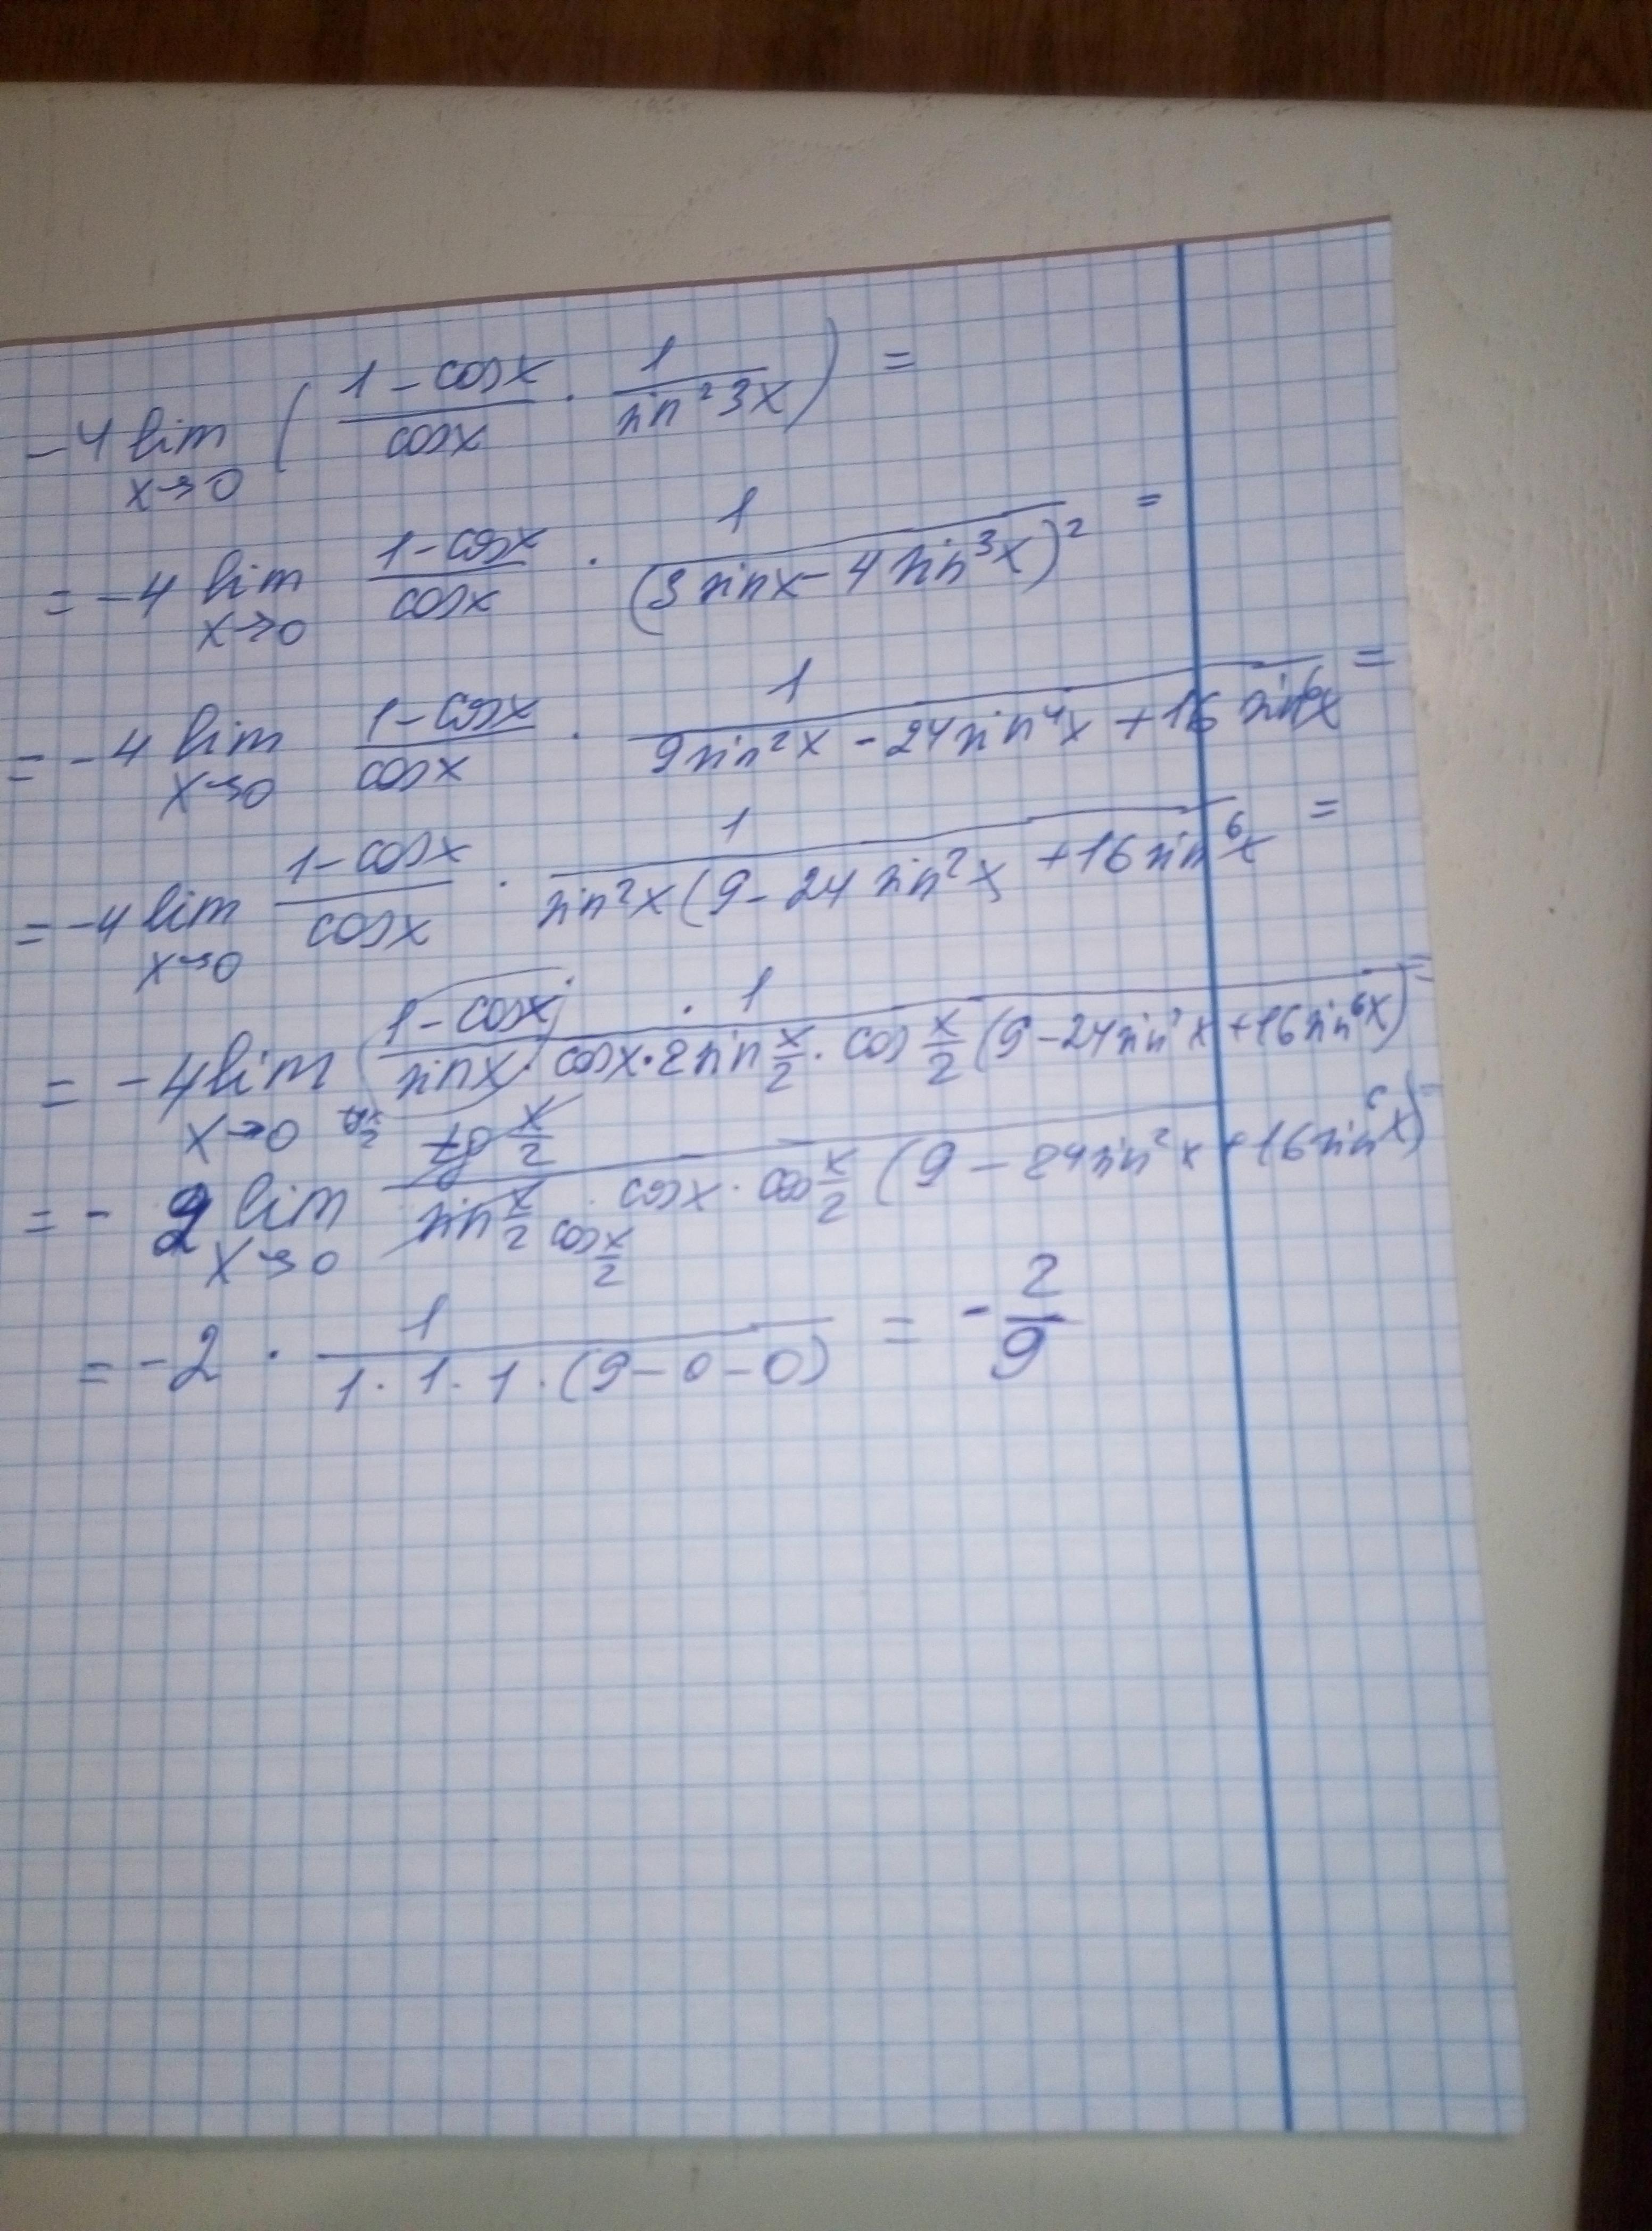 -4 lim x→0 ( (1-cosx)/cosx · 1/(sin²3x) ) =
= -4 lim x→0 (1-cosx)/cosx · 1/(3sinx-4sin³x)² =
= -4 lim x→0 (1-cosx)/cosx · 1/(9sin²x - 24sin⁴x + 16sin⁶x) =
= -4 lim x→0 (1-cosx)/cosx · 1/(sin²x(9-24sin²x + 16sin⁶x =
= -4 lim x→0 ((1-cosx)/sinx) · 1/(cosx·2sin x/2 · cos x/2 (9-24sin²x+16sin⁶x) =
= - 2 lim x→0 x/2 / (sin x/2 cos x/2 · cosx · cos x/2 (9 - 24sin²x + 16sin x) =
= -2 · 1/(1·1·1·(9-0-0)) = -2/9